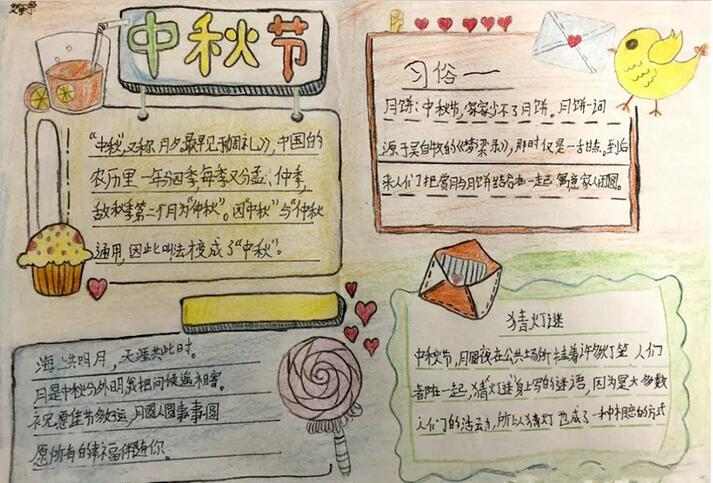 中秋节
"中秋"又称月夕,最早见于《周礼》,中国的
农历里一年分四季,每季又分孟、仲、季,
故秋季第二个月为"仲秋"。因"中秋"与"仲秋
通用,因此叫法变成了"中秋"。
海上共明月,天涯共此时。
月是中秋分外明,我把问候遥相寄。
祝愿佳节多好运,月圆人圆事事圆
愿所有的幸福伴随你。
习俗一
月饼:中秋节,家家少不了月饼。月饼一词
源于吴自牧的《梦梁录》,那时仅是一种甜点。到后
来人们把赏月与月饼结合在一起,寓意家人团圆。
猜灯谜
中秋节,月圆夜在公共场所挂着许多灯笼,人们
都在一起,猜灯谜身上写的谜语,因为是大多数
人们的活动,所以猜灯谜也成了一种相恋的方式